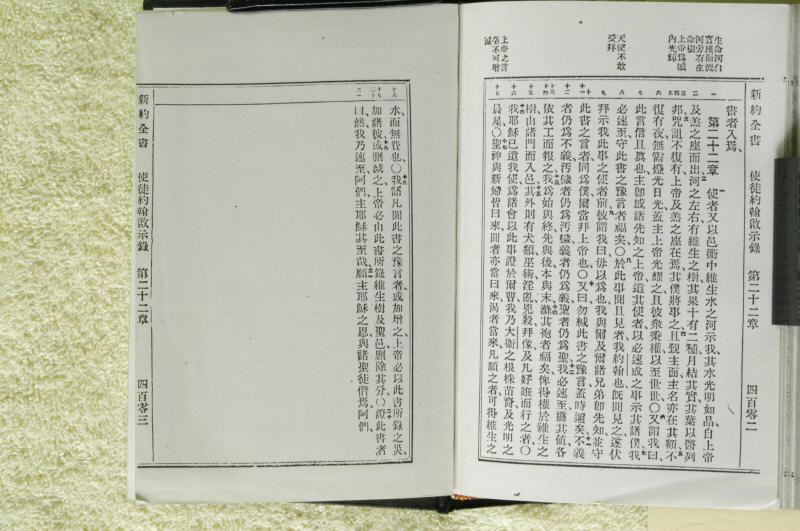 新約全書 使徒約翰啟示錄 第二十二章 四百零二
生命河自
寶座而流
河旁有生
命樹
上帝爲城
內光輝
天使不敢
受拜
上帝之言
不可增
減
書者入焉、
第二十二章 使者又以邑衢中維生水之河示我、其水光明如晶、自上帝
及羔之座而出、河之左右有維生之樹、其果十有二種、月結其實、其葉以醫列
邦、咒詛不復有、上帝及羔之座在焉、其僕將事之、且覿主面、主名亦在其額、不
復有夜、無需燈光日光、蓋主上帝光耀之、且彼衆秉權以至世世、〇又謂我曰、
此言信且眞也、主卽感諸先知之上帝、遣其使者以必速成之事示其諸僕、我
必速至、守此書之豫言者福矣、〇於此事聞且見者、我約翰也、旣聞見之、遂伏
拜示我此事之使者前、彼謂我曰、毋以爲也、我與爾及爾諸兄弟卽先知、並守
此書之言者、同爲僕、爾當拜上帝也、〇又曰、勿緘此書之豫言、蓋時邇矣、不義
者仍爲不義、汚穢者仍爲汚穢、義者仍爲義、聖者仍爲聖、我必速至、攜其值、各
依其工而報之、我爲始與終、先與後、本與末、滌其袍者福矣、俾得權於維生之
樹、由諸門而入邑、其外則有犬類、巫術、淫亂、兇殺、拜像、及凡好誑而行之者、〇
我耶穌已遣我使、爲諸會以此事證於爾曹、我乃大衞之根株苗裔、及光明之
晨星、〇聖神與新婦皆曰來、聞者亦當曰來、渴者當來、凡願之者、可得維生之
新約全書 使徒約翰啟示錄 第二十二章 四百零三
水而無費也、〇我語凡聞此書之豫言者、或加增之、上帝必以此書所錄之災
加諸彼、或刪減之、上帝必由此書所錄維生樹及聖邑、刪除其分、〇證此書者
曰、然、我乃速至、阿們、主耶穌其至哉、願主耶穌之恩、與諸聖徒偕焉、阿們、